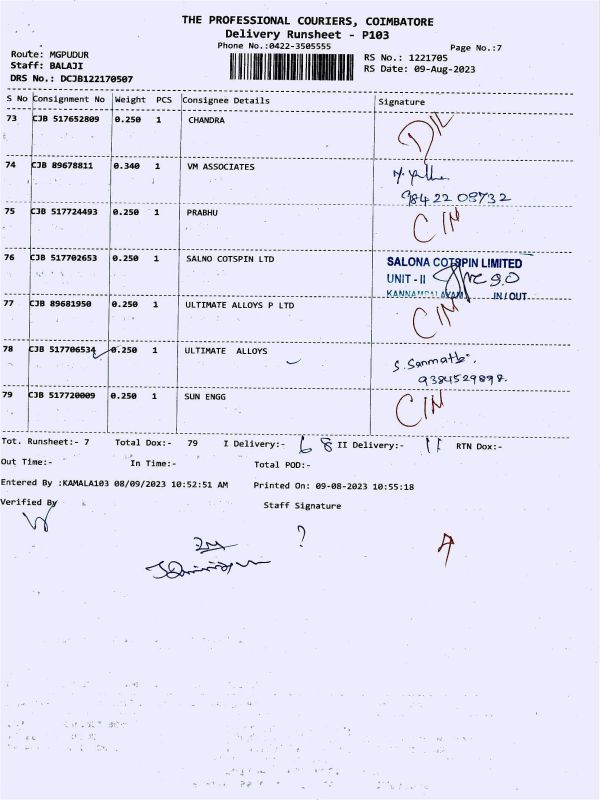 THE PROFESSIONAL COURIERS, COIMBATORE
Delivery Runsheet - P103
Phone No.:0422-3505555
Page No.:7
Route: MGPUDUR
Staff: BALAJI
DRS No.: DCJB122170507
RS No.: 1221705
RS Date: 09-Aug-2023
S No Consignment No Weight PCS Consignee Details Signature
73 CJB 517652809 0.250 1 CHANDRA D/L
74 CJB 89678811 0.340 1 VM ASSOCIATES
98422 08732
75 CJB 517724493 0.250 1 PRABHU C/N
76 CJB 517702653 0.250 1 SALNO COTSPIN LTD SALONA COTSPIN LIMITED
UNIT - II
KANNAMPALAYAM IN / OUT
77 CJB 89681950 0.250 1 ULTIMATE ALLOYS P LTD C/N
78 CJB 517706534 0.250 1 ULTIMATE ALLOYS S. Sanmathi
9384529898.
79 CJB 517720009 0.250 1 SUN ENGG C/N
Tot. Runsheet:- 7 Total Dox:- 79 I Delivery:- 68 II Delivery:- 11 RTN Dox:-
Out Time:- In Time:- Total POD:-
Entered By :KAMALA103 08/09/2023 10:52:51 AM Printed On: 09-08-2023 10:55:18
Verified By Staff Signature
?